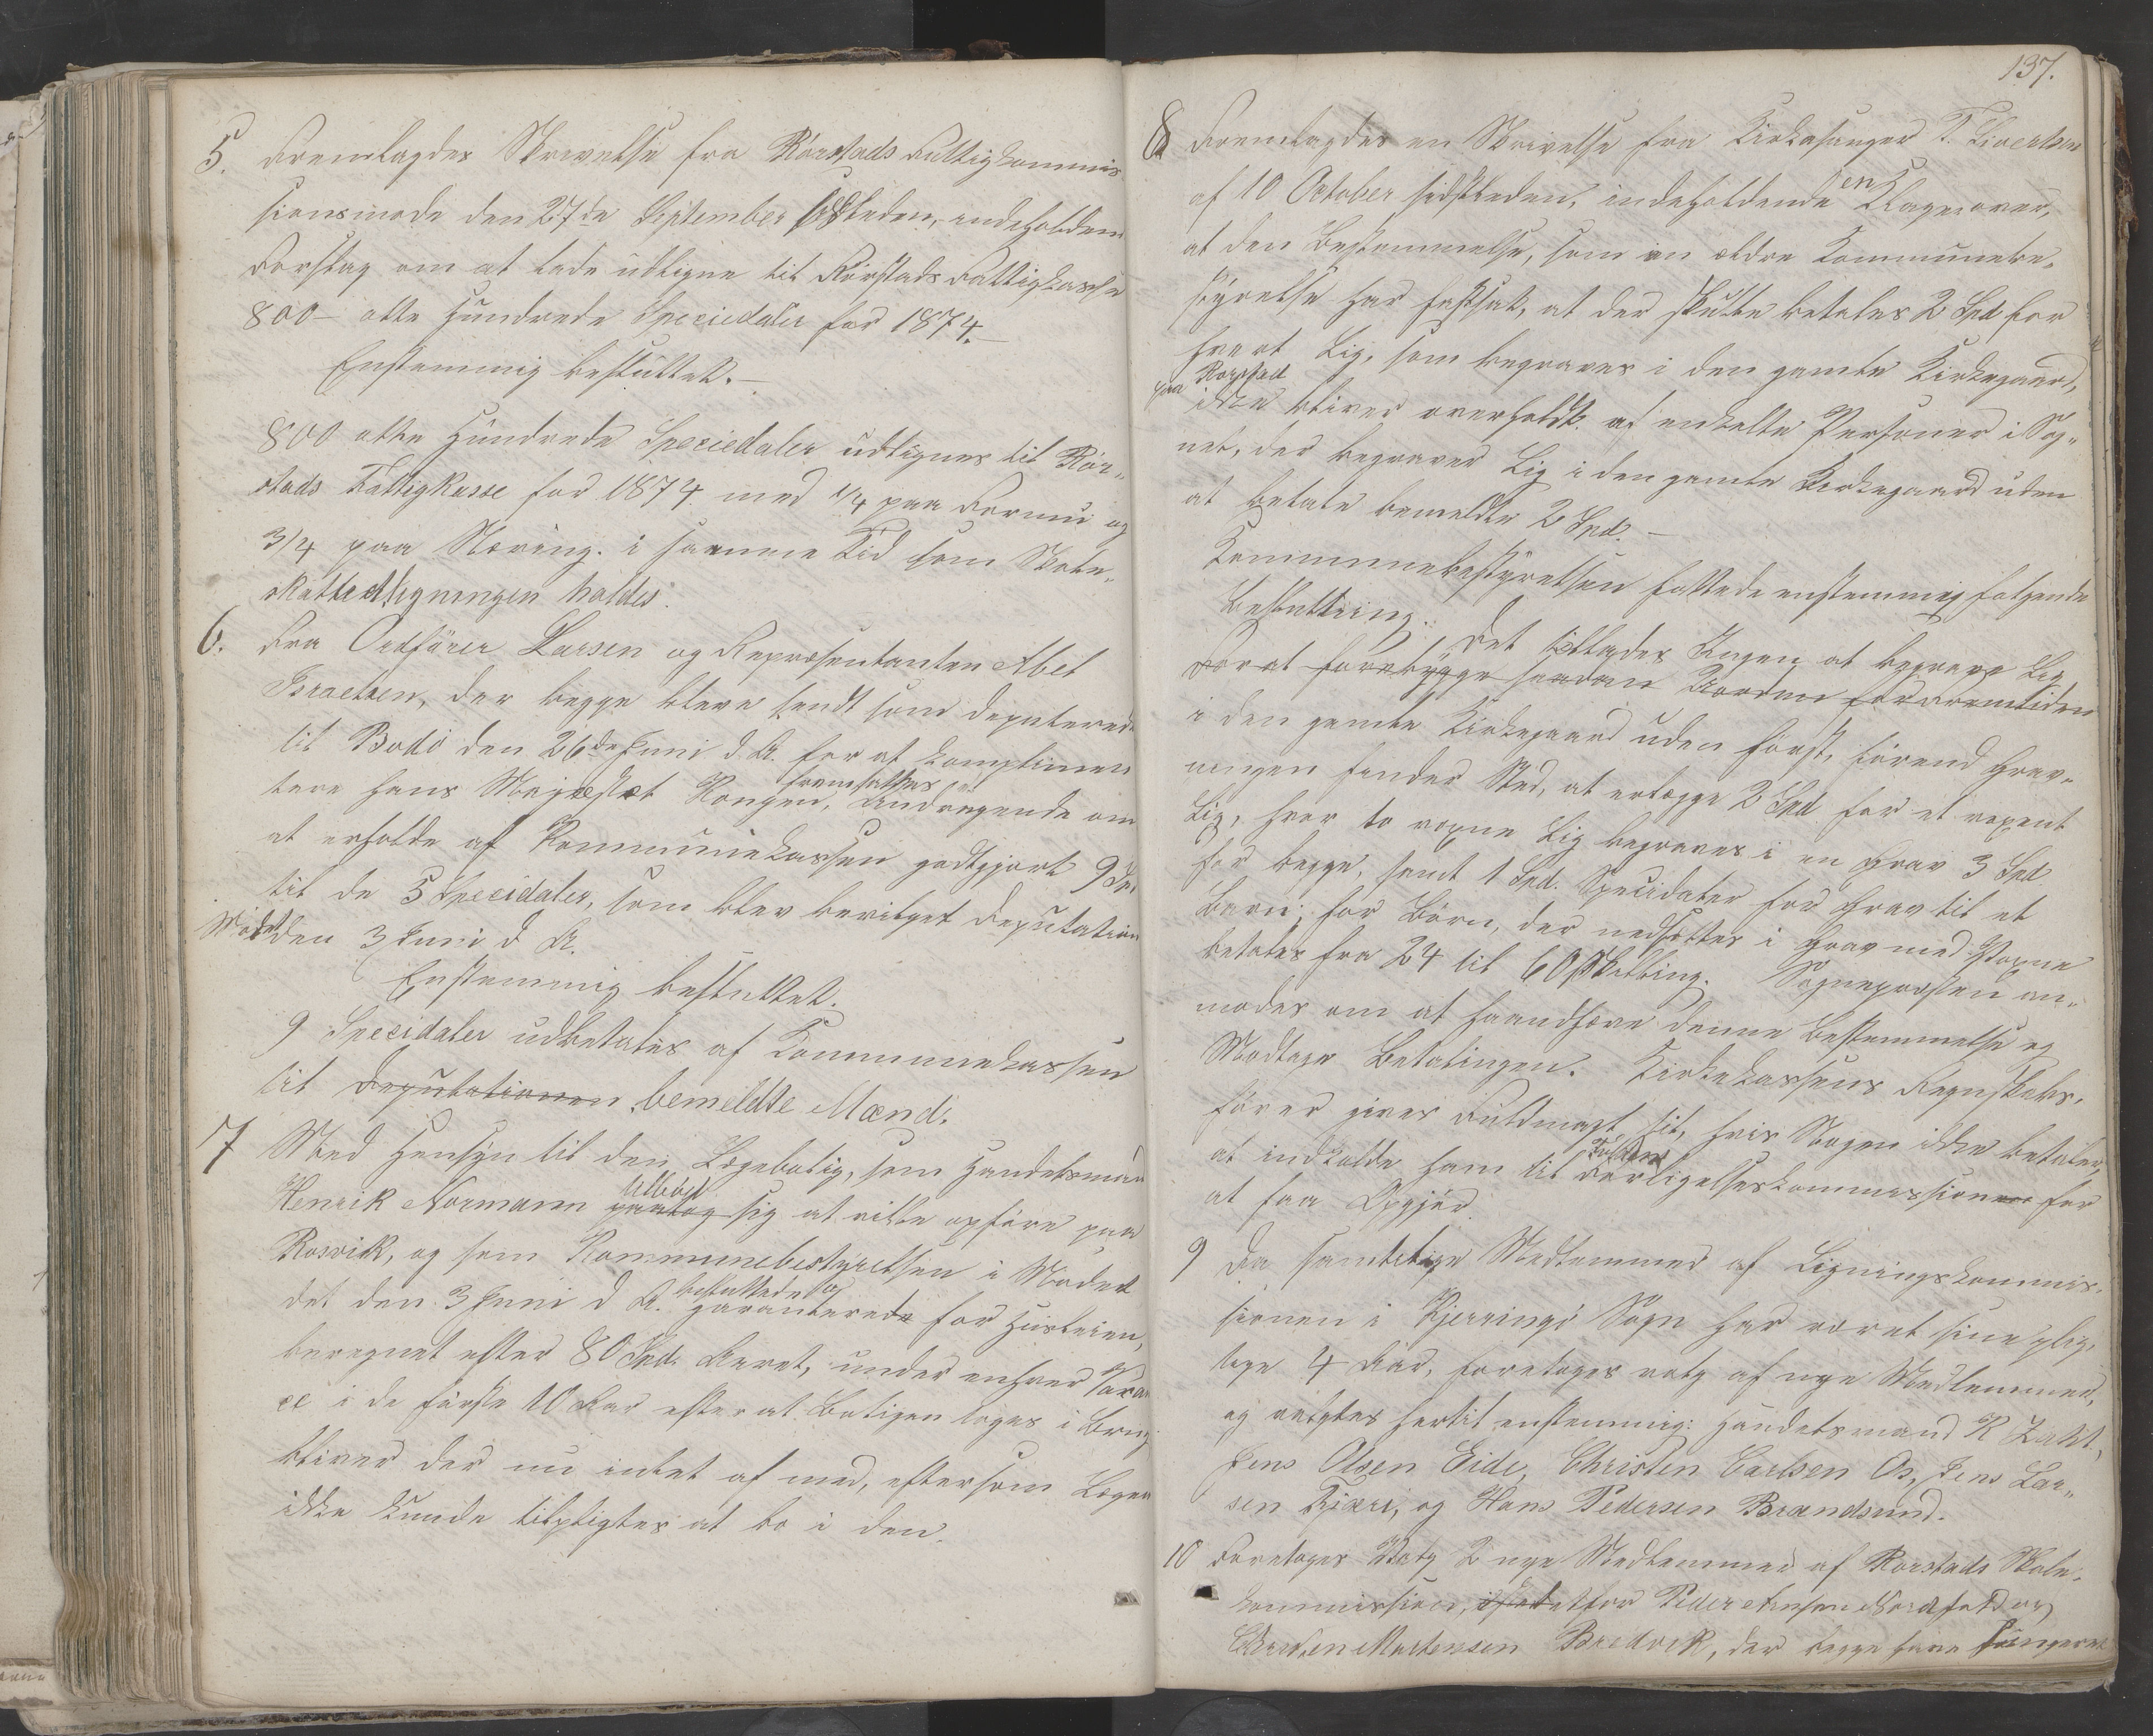 5. Fremlagdes Skrivelse fra Rørstads Fattigkommis
sionsmøde den 27de September sidstleden, indeholdende
Forslag om at lade udligne til Rørstads Fattigkasse
800 – otte Hundrede Speciedaler for 1874.–
Enstemmig besluttet.–
800 otte Hundrede Speciedaler udlignes til Rør„
stads Fattigkasse for 1874 med 1/4 paa Formue og
3/4 paa Næring. i samme Tid som Skole„
skatteligningen holdes.
6. Fra Ordfører Larsen og Repræsentanten Abel
Israelsen, der begge bleve sendt som deputerede
til Bodø den 26de Juni d. A. for at komplimen
tere Hans Majestæt Kongen, fremsattes Andragende om
at erholde af Kommunekassen godtgjort 9 Spd
til de 5 Speciedaler, som blev bevilget Deputation
Mødet den 3 Juni d A.
Enstemmig besluttet.
9 Speciedaler udbetales af Kommunekassen
til Deputationen bemeldte Mænd.
7 Med Hensyn til den Lægebolig, som Handelsmand
Henrik Normann paatog tilbød sig at ville opføre paa
Røsvik, og som Kommunebestyrelsen i Mødet
det den 3 Juni d A. besluttede og garanterede for Husleien,
beregnet efter 80 Spd. Aaret, under enhver
i de første 10 Aar efterat Boligen toges i Brug
bliver der nu intet af med, eftersom Lægen
ikke kunde tilpligtes at bo i den.
137.
8 Fremlagdes en Skrivelse fra Kirkesanger T. Sivertsen
af 10 October sidstleden, indeholdende en Klage over,
at den Bestemmelse, som en ældre Kommunebe„
styrelse har fastsat, at der skulle betales 2 Spd for
hvert Lig, som begraves i den gamle Kirkegaard,
paa Rørstad
ikke bliver overholdt af enkelte Personer i Sog„
net, der begraver Lig i den gamle Kirkegaard uden
at betale bemeldte 2 Spd. –
Kommunebestyrelsen fattede enstemmig følgende
Beslutning: Det tillades Ingen at begrave Lig
For at forebygge saadan Uorden for Fremtiden
i den gamle Kirkegaard uden først, førend Grav„
ningen finder Sted, at erlægge 2 Spd for et voxent
Lig, hver to voxne Lig begraves i en Grav 3 Spd
for begge, samt 1 Spd. Speciedaler for Grav til et
Barn; for Børn, der nedsættes i Grav med Voxne
betales fra 24 til 60 Skilling. Sognepresten an„
modes om at haandhæve denne Bestemmelse og
Modtage Betalingen. Kirkekassens Regnskabs„
fører gives Fuldmagt til, hvis Nogen ikke betaler,
at indkalde ham til Foldens Forligelseskommissionen for
at faa Opgjør.
9 Da samtlige Medlemmer af Ligningskommis„
sionen i Kjerringø Sogn har været sine plig„
tige 4 Aar, foretoges valg af nye Medlemmer,
og valgtes hertil enstemmig: Handelsmand K Zahl,
Jens Olsen Eide, Christen Carlsen Os, Jens Lar„
sen Fjære, og Hans Pedersen Brændsund.
10 Foretoges Valg 2 nye Medlemmer af Rørstads Skole„
kommission, istedetfor Peder Hansen Nordfold og
Mortensen Bredvik, der begge have fungeret